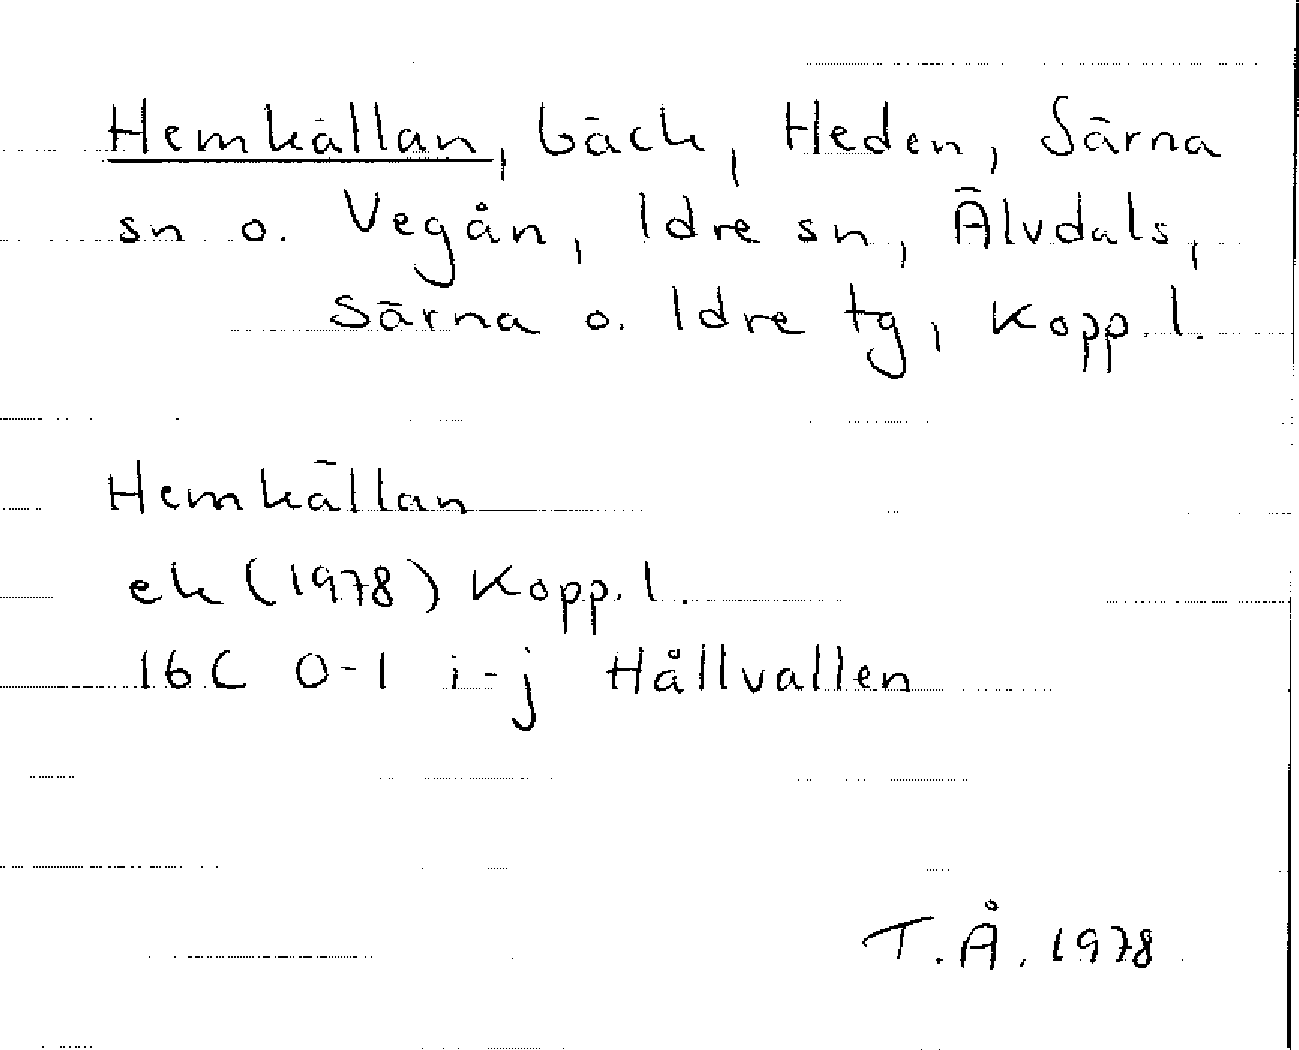 Hemkällan, bäck, Heden, Särna
sn o. Vegån, Idre sn, Älvdals,
Särna o. Idre tg, Kopp. l.
Hemkällan
ek (1978) Kopp. l.
16C 0-1 i-j Hållvallen
T.Å. 1978